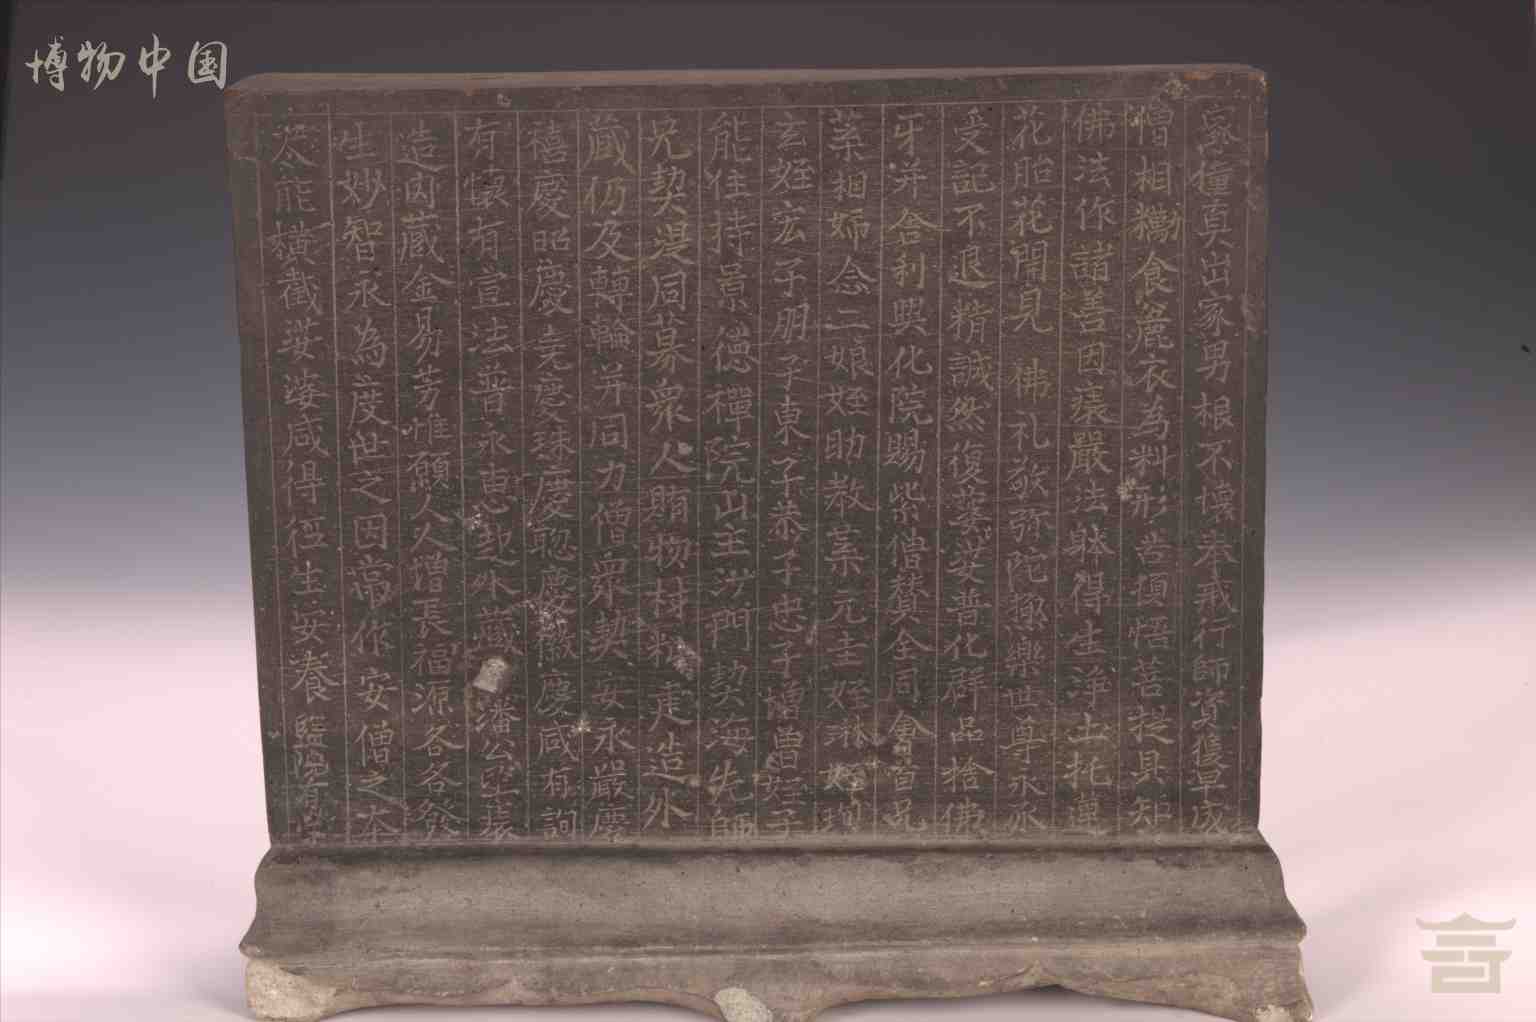 博物中国
寂僮真出家男根不壞奉戒行師資獲早成
憎相糲食麁衣為料形骨頂悟菩提具知
佛法作諸善因瘞嚴法躰得生淨土托蓮
花胎花開見佛礼敬弥陀極樂世尊永永
受記不退精誠然復葉妄普化群品捨佛
牙并舍利興化院賜紫僧賛全同會首兄
葉相婦念二娘姪助教葉元圭姪淋姪珣
玄姪宏子朋子東子恭子忠子増曽姪子
能住持景徳禪院山主沙門契海先師
兄契湜同募衆人賄物材粒走造外
蔵仍及轉輪并同力僧衆契安永嚴慶
禧慶昭慶堯慶珠慶聰慶徽慶咸有詞
有懷有宣法普永惠知外藏潘公墅瘞
造内藏金易芳惟願人人增長福源各各發
生妙智永為度世之因常作安僧之本
能橫截娑婆咸得徑生安養監院有